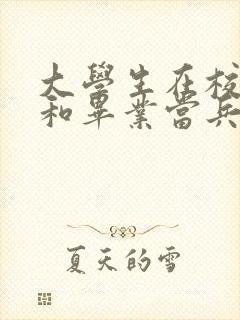 大學生在校
和畢業當兵
夏天的雪